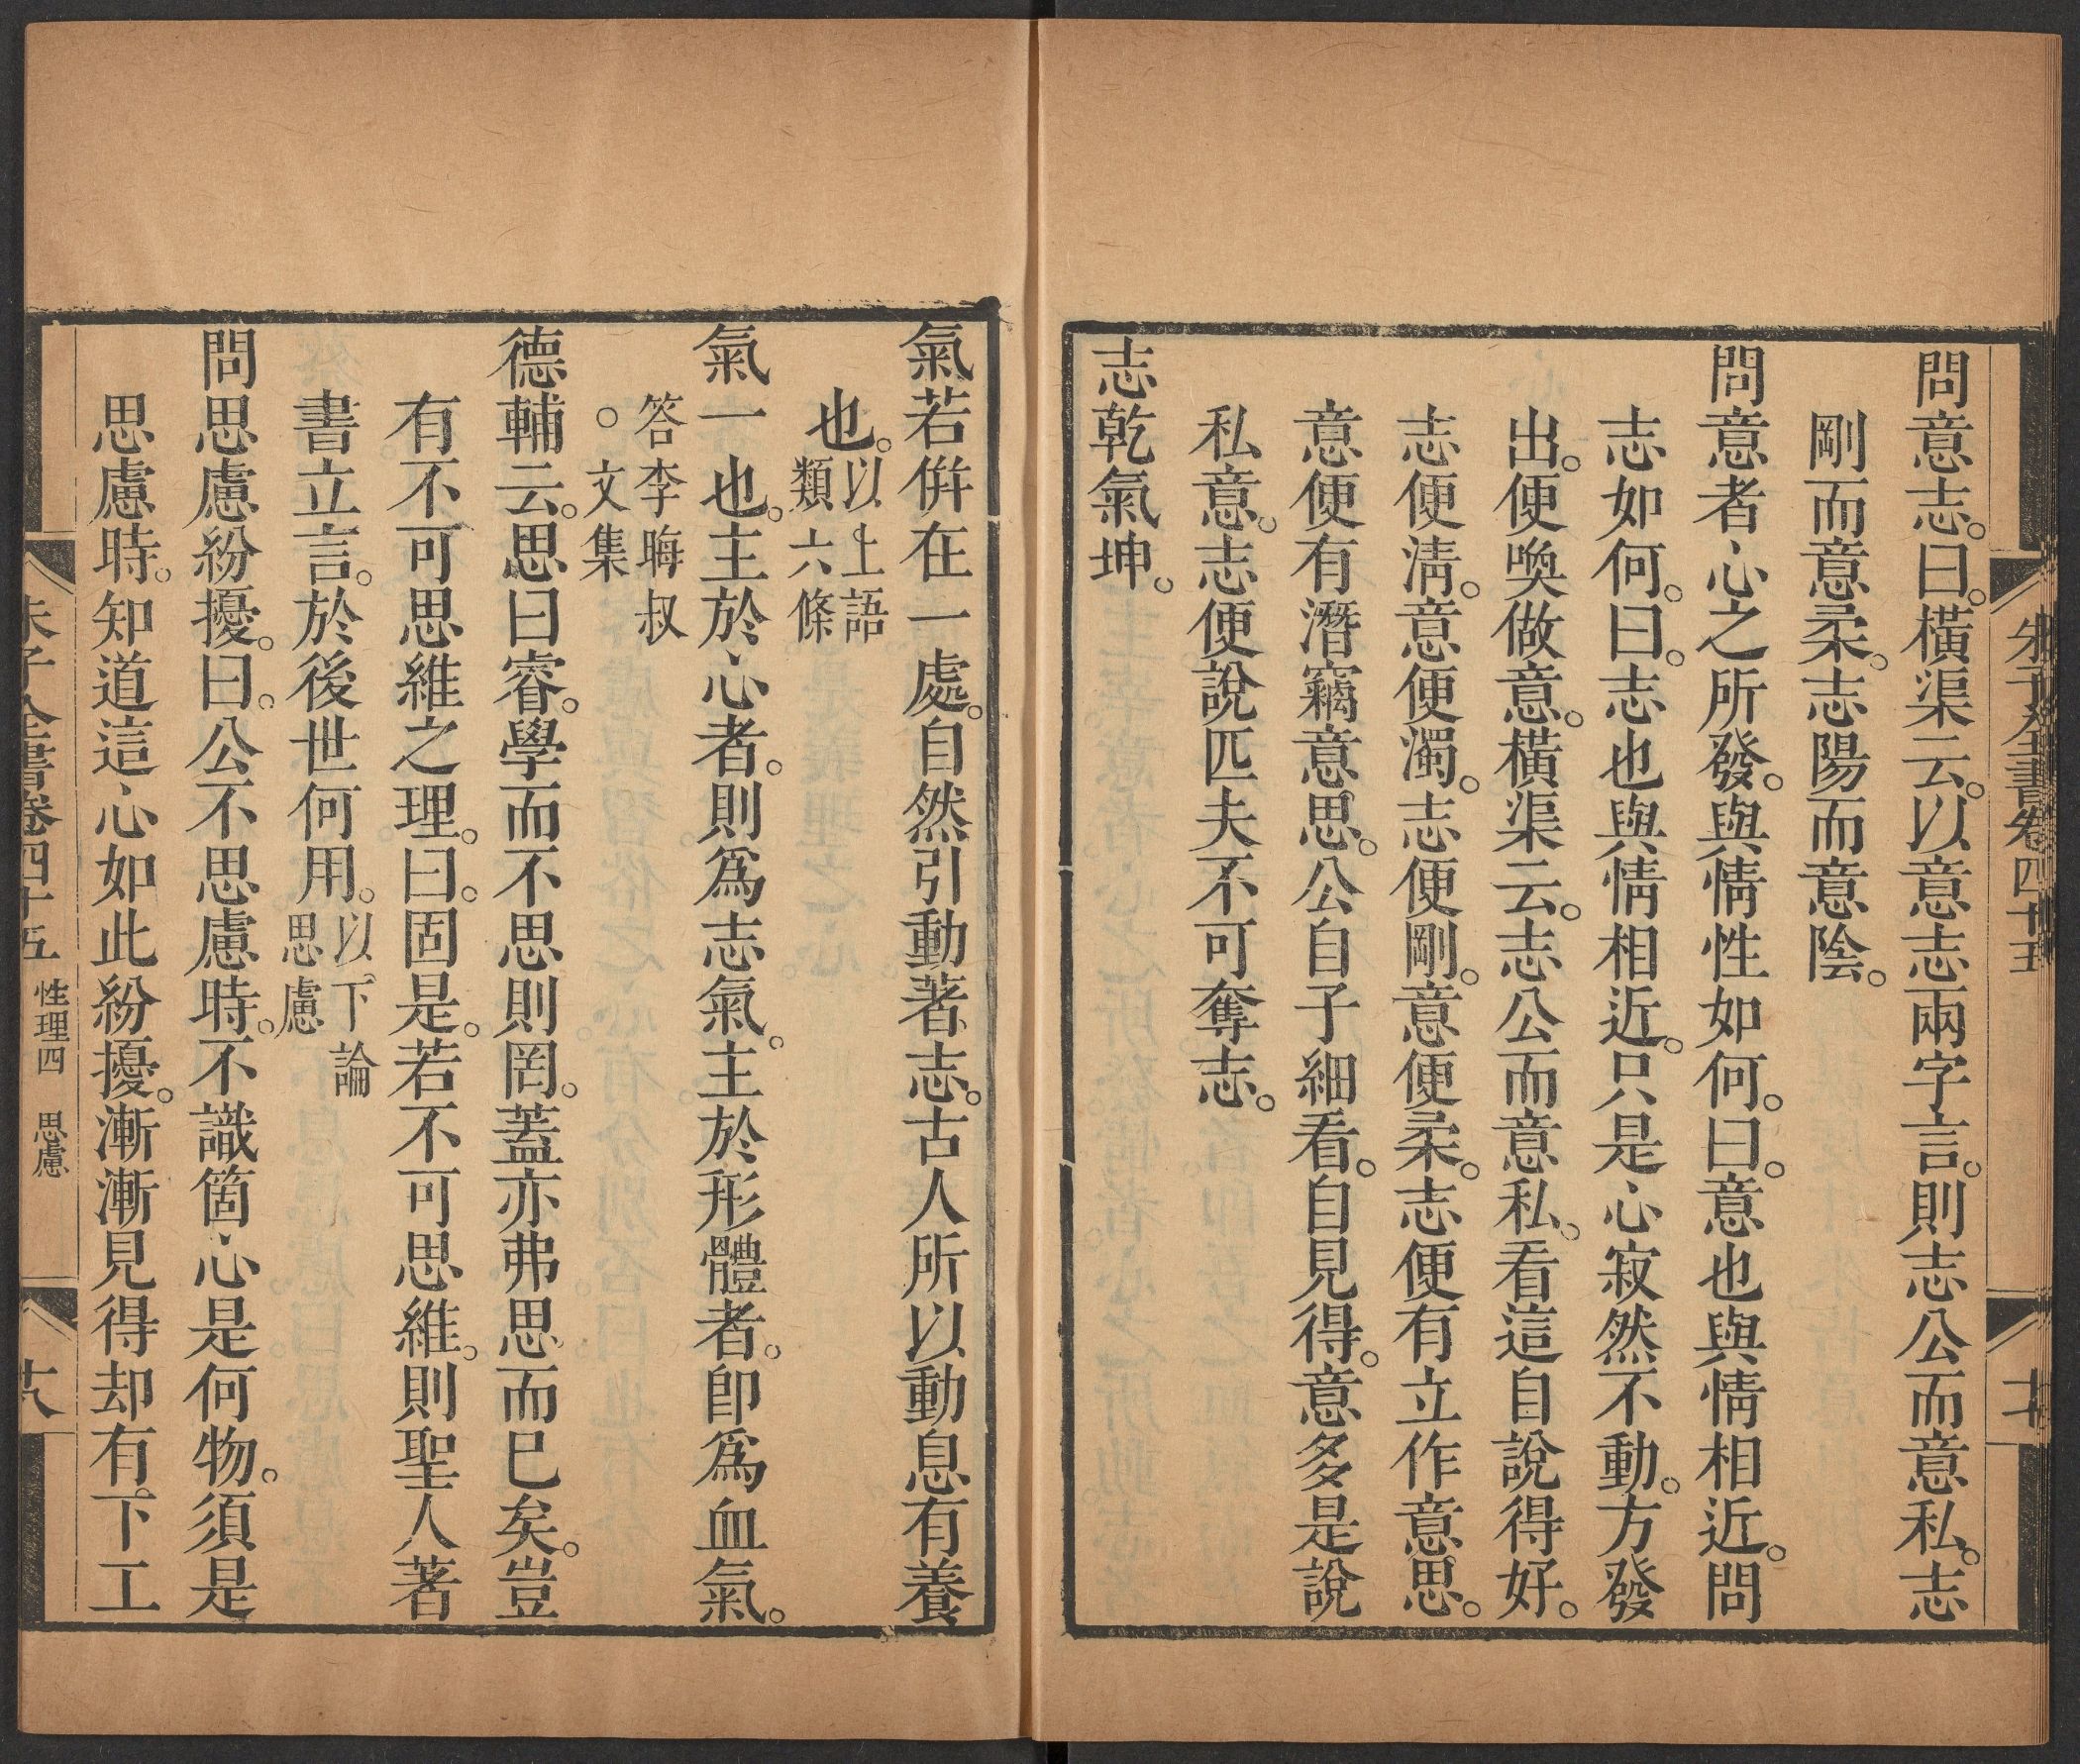 朱子全書卷四十五
十七
問意志。曰。橫渠云。以意志兩字言。則志公而意私。志
剛而意柔。志陽而意陰。
問意者心之所發。與情性如何。曰。意也與情相近。問
志如何。曰。志也與情相近。只是心寂然不動。方發
出。便喚做意。橫渠云。志公而意私。看這自說得好。
志便淸。意便濁。志便剛。意便柔。志便有立作意思。
意便有潛竊意思。公自子細看。自見得。意多是說
私意。志便說匹夫不可奪志。
志乾氣坤。
氣若倂在一處。自然引動著志。古人所以動息有養
也。以上語類六條
氣一也。主於心者。則爲志氣。主於形體者。卽爲血氣。
答李晦叔。文集
德輔云。思曰睿。學而不思則罔。蓋亦弗思而已矣。豈
有不可思維之理。曰。固是。若不可思維。則聖人著
書立言。於後世何用。以下論思慮
問思慮紛擾。曰。公不思慮時。不識箇心是何物。須是
思慮時。知道這心如此紛擾。漸漸見得却有下工
朱子全書卷四十五 性理四 思慮
十八